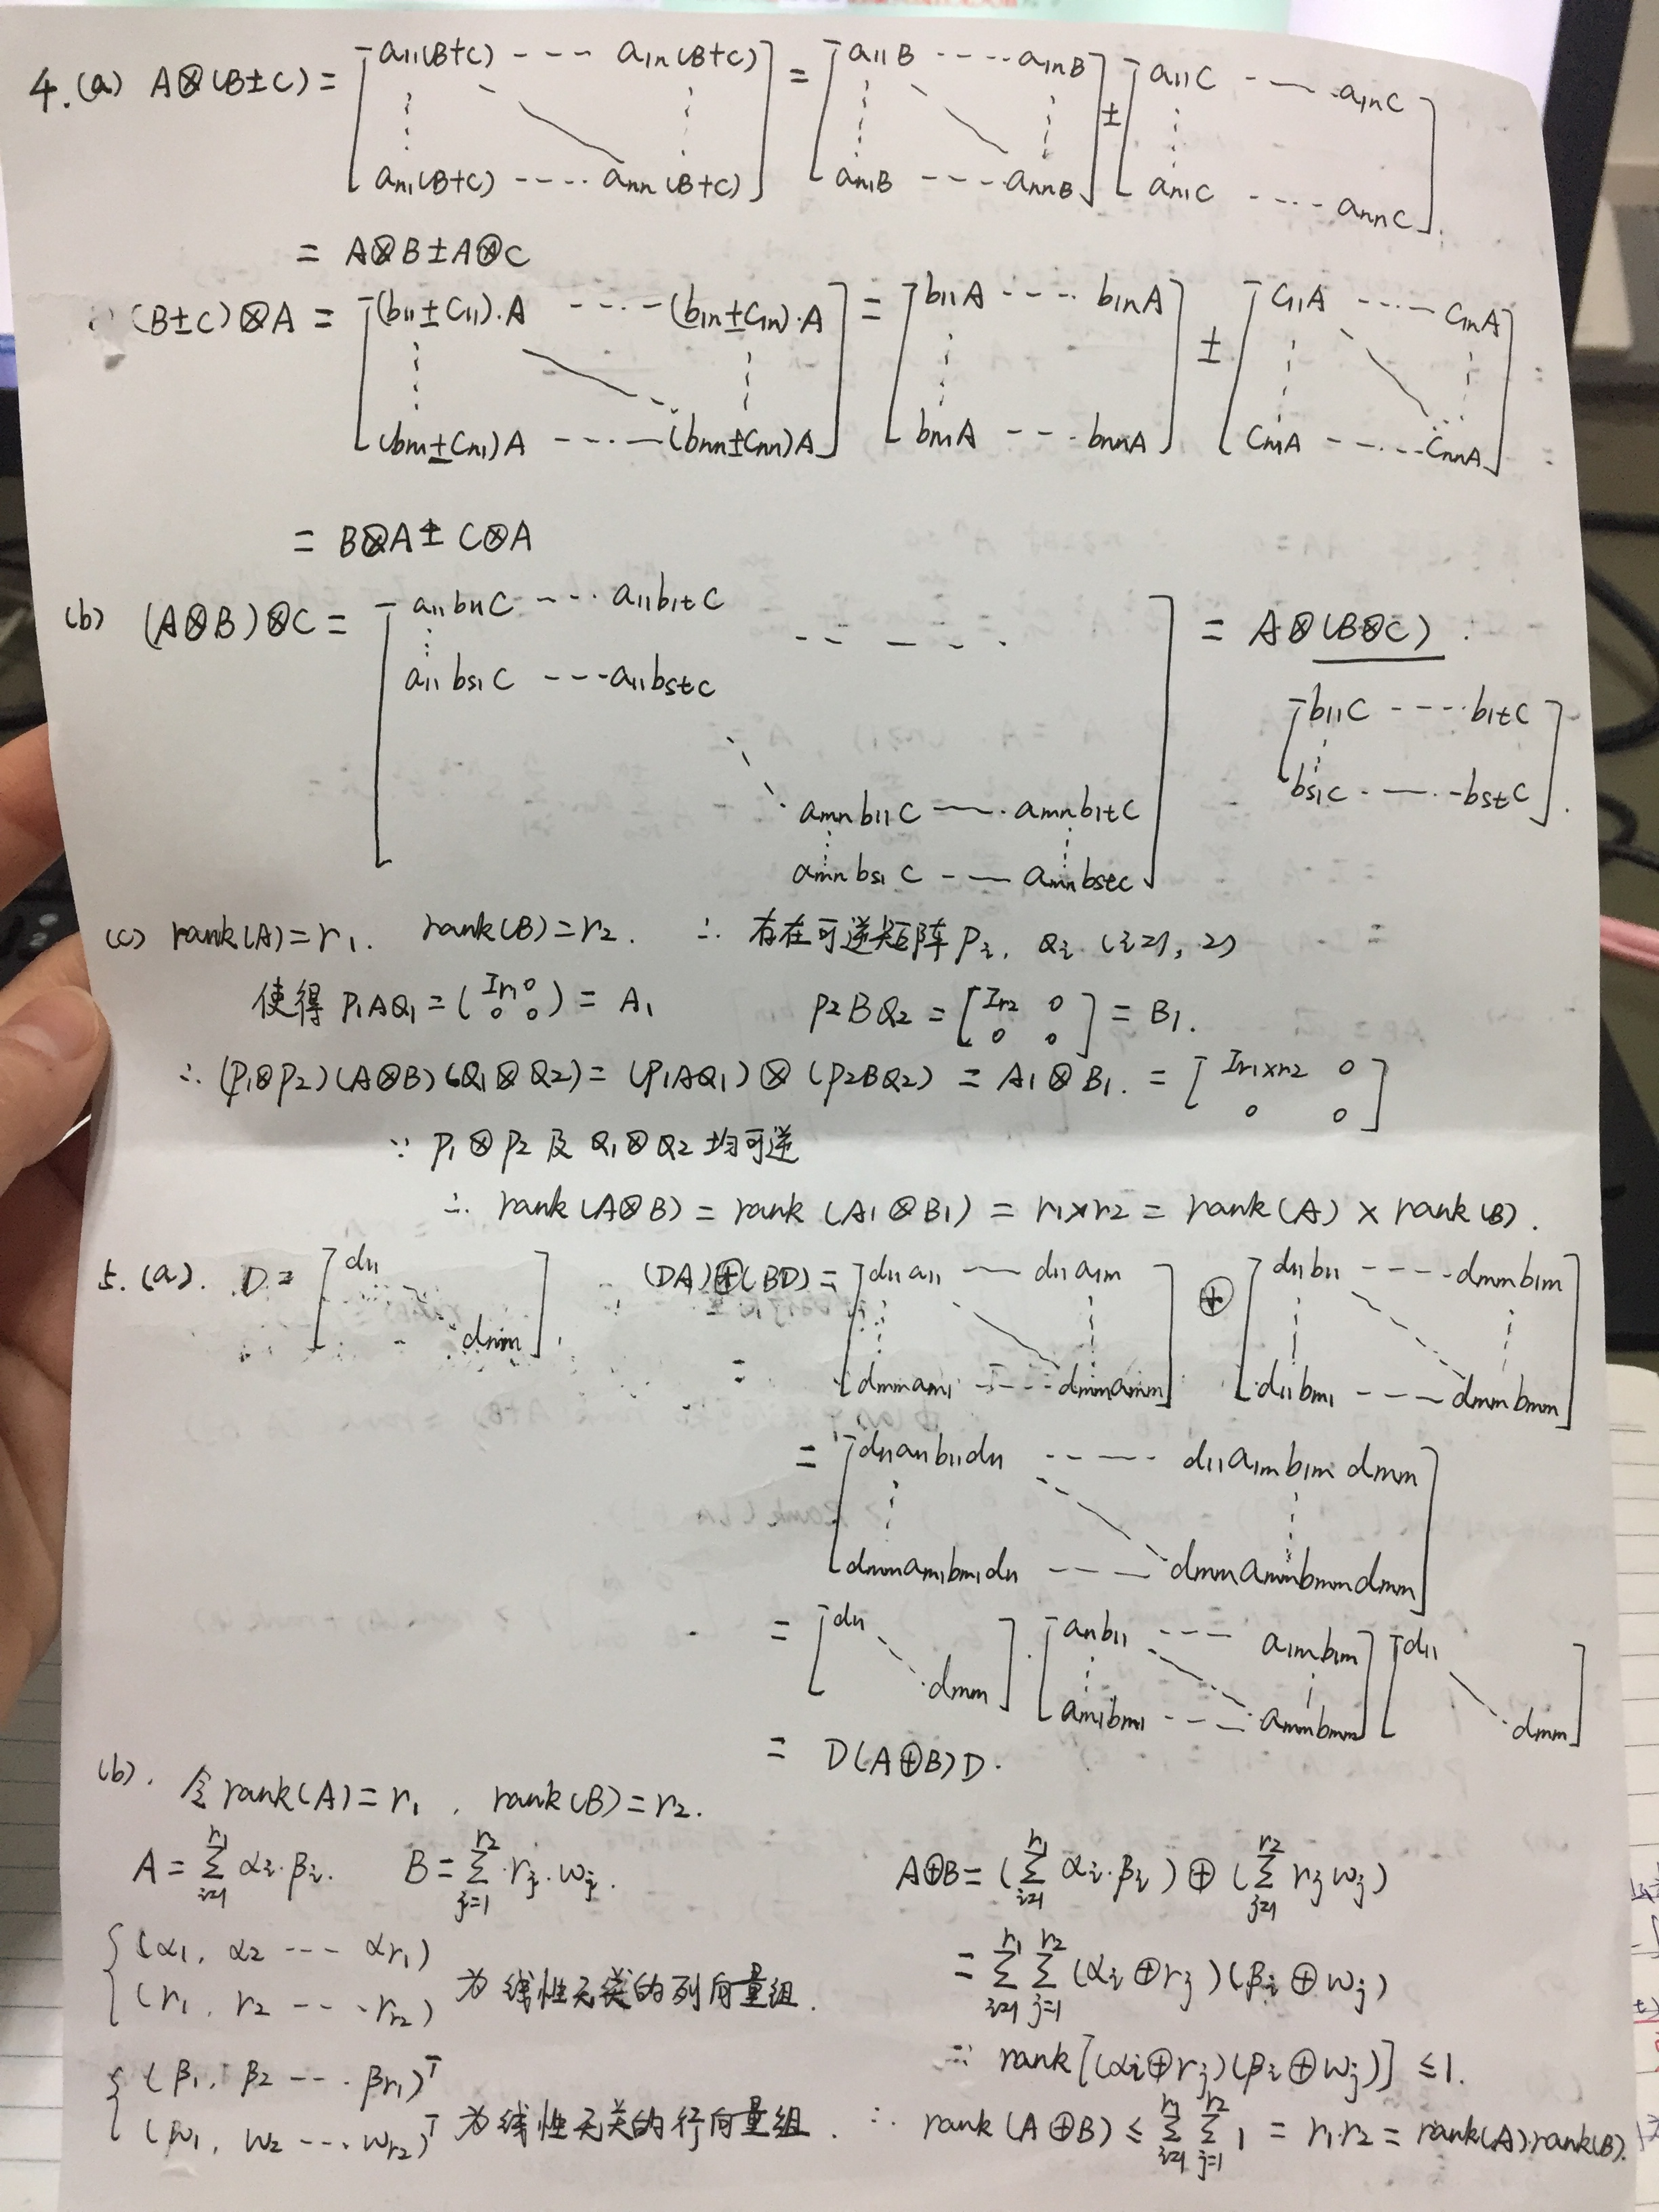 4.(a) A⊗(B±C) = [a11(B+C) ---- a1n(B+C) ⋮ an1(B+C) ---- ann(B+C)] = [a11B ---- a1nB ⋮ an1B ---- annB] ± [a11C ---- a1nC ⋮ an1C ---- annC]
= A⊗B±A⊗C
(B±C)⊗A = [(b11±C11)·A ---- (b1n±C1n)·A ⋮ (bn1±Cn1)A ---- (bnn±Cnn)A] = [b11A ---- b1nA ⋮ bn1A ---- bnnA] ± [C11A ---- C1nA ⋮ Cn1A ---- CnnA]
= B⊗A ± C⊗A
(b) (A⊗B)⊗C = [a11b11C --- a11b1tC ---- ⋮ a11bs1C --- a11bstC ⋱ amnb11C ---- amnb1tC ⋮ amnbs1C ---- amnbstC] = A⊗(B⊗C).
[b11C ---- b1tC ⋮ bs1C ---- bstC].
(c) rank(A)=r1. rank(B)=r2. ∴ 存在可逆矩阵Pi, Qi (i=1,2)
使得 P1AQ1 = (Ir1 0 0 0) = A1 P2BQ2 = [Ir2 0 0 0] = B1.
∴ (P1⊗P2)(A⊗B)(Q1⊗Q2) = (P1AQ1)⊗(P2BQ2) = A1⊗B1. = [Ir1×r2 0 0 0]
∵ P1⊗P2 及 Q1⊗Q2 均可逆
∴ rank(A⊗B) = rank(A1⊗B1) = r1×r2 = rank(A)×rank(B).
5.(a). D = [d11 ⋱ dmm]. (DA)⊕(BD) = [d11a11 ---- d11a1m ⋮ dmmam1 ---- dmmamm] ⊕ [d11b11 ---- dmmb1m ⋮ d11bm1 ---- dmmbmm]
= [d11a11b11d11 ---- d11a1mb1mdmm ⋮ dmmam1bm1d11 ---- dmmammbmmdmm]
= [d11 ⋱ dmm]·[a11b11 --- a1mb1m ⋮ am1bm1 --- ammbmm][d11 ⋱ dmm]
= D(A⊕B)D.
(b). 令rank(A)=r1, rank(B)=r2.
A = Σ_{i=1}^{r1} αi·βi. B = Σ_{j=1}^{r2} rj·wj. A⊕B = (Σ_{i=1}^{r1} αi·βi) ⊕ (Σ_{j=1}^{r2} rjwj)
{(α1, α2 --- αr1) (r1, r2 ---- rr2) 为线性无关的列向量组. = Σ_{i=1}^{r1} Σ_{j=1}^{r2} (αi⊕rj)(βi⊕wj)
∵ rank[(αi⊕rj)(βi⊕wj)] ≤ 1.
{(β1, β2 --- βr1)^T (w1, w2 --- wr2)^T 为线性无关的行向量组. ∴ rank(A⊕B) ≤ Σ_{i=1}^{r1} Σ_{j=1}^{r2} 1 = r1·r2 = rank(A)·rank(B).